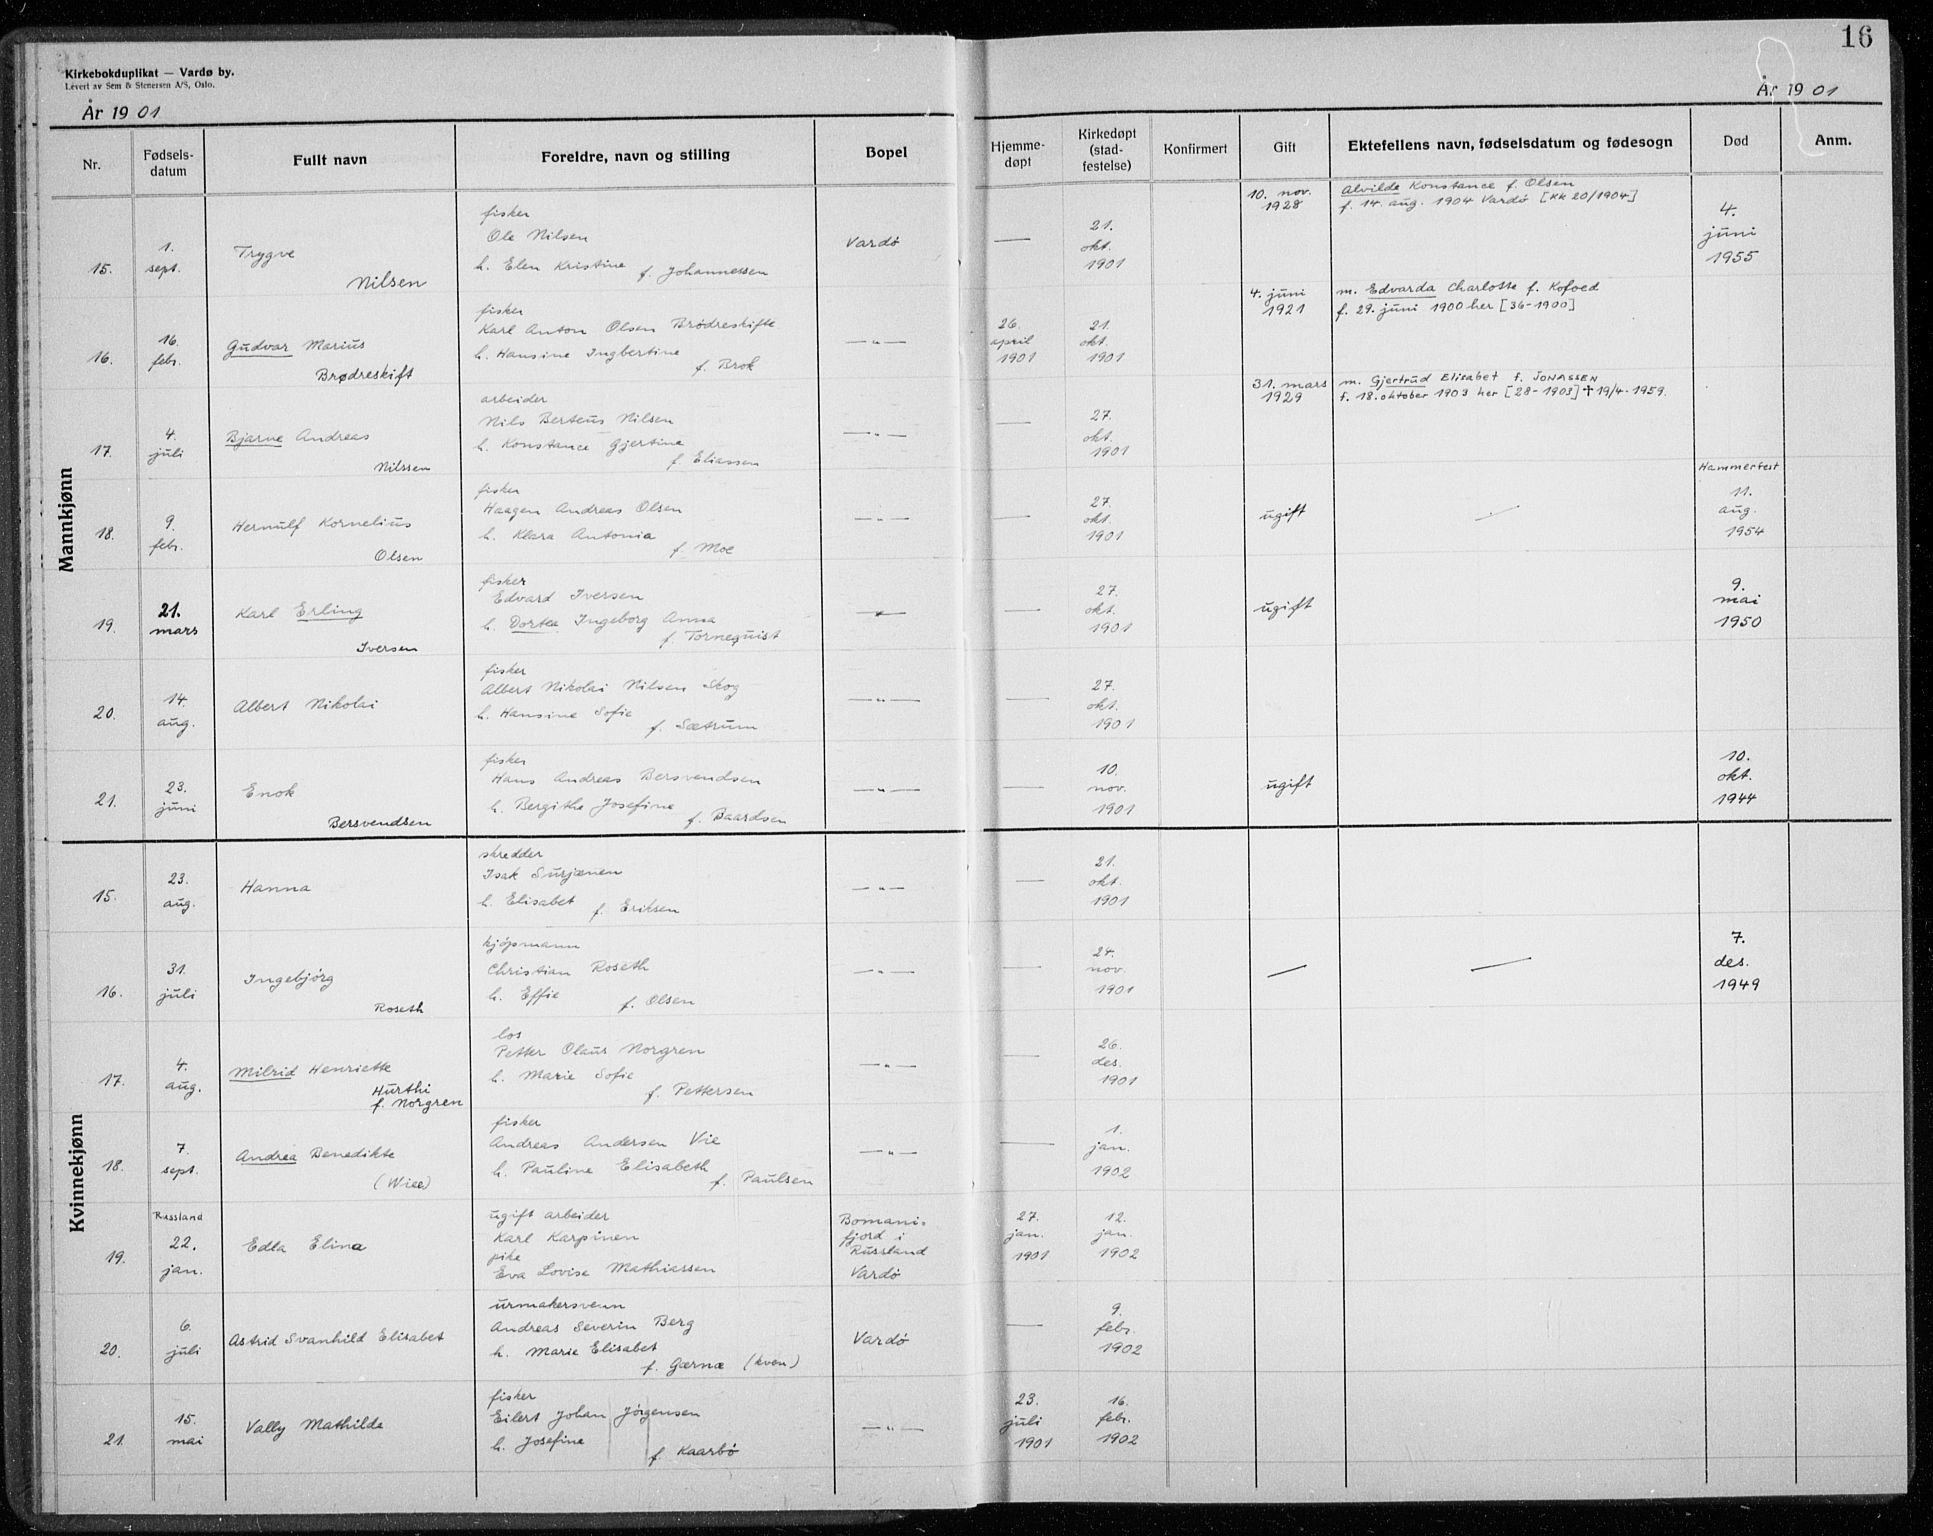 16
Kirkebokduplikat — Vardø by.
Levert av Sem & Stenersen A/S, Oslo.
År 1901
År 1901
Nr. Fødsels-datum Fullt navn Foreldre, navn og stilling Bopel Hjemme-døpt Kirkedøpt (stad-festelse) Konfirmert Gift Ektefellens navn, fødselsdatum og fødesogn Død Anm.
Mannkjønn
15. 1. sept. Trygve Nilsen
fisker
Ole Nilsen
h. Elen Kristine f. Johannessen
Vardø — 21. okt. 1901
10. nov. 1928
Alvilde Konstance f. Olsen
f. 14. aug. 1904 Vardø [KK 20/1904]
4. juni 1955
16. 16. febr. Gudvar Marius Brødreskift
fisker
Karl Anton Olsen Brødreskifte
h. Hansine Ingbertine f. Brok
—"— 26. april 1901 21. okt. 1901
4. juni 1921
m. Edvarda Charlotte f. Kofoed
f. 29. juni 1900 her [36-1900]
17. 4. juli Bjarne Andreas Nilssen
arbeider
Nils Berteus Nilsen
h. Konstance Gjertine f. Eliassen
—"— — 27. okt. 1901
31. mars 1929
m. Gjertrud Elisabet f. JONASSEN
f. 18. oktober 1903 her [28-1903] ✝ 19/4-1959.
18. 9. febr. Hernulf Kornelius Olsen
fisker
Haagen Andreas Olsen
h. Klara Antonia f. Moe
—"— — 27. okt. 1901 ugift —
Hammerfest
11. aug. 1954
19. 21. mars Karl Erling Iversen
fisker
Edvard Iversen
h. Dortea Ingeborg Anna f. Tornequist
—"— — 27. okt. 1901 ugift
9. mai 1950
20. 14. aug. Albert Nikolai
fisker
Albert Nikolai Nilsen Skog
h. Hansine Sofie f. Sætrum
—"— — 27. okt. 1901
21. 23. juni Enok Bersvendsen
fisker
Hans Andreas Bersvendsen
h. Bergithe Josefine f. Baardsen
—"— — 10. nov. 1901 ugift
10. okt. 1944
Kvinnekjønn
15. 23. aug. Hanna
skredder
Isak Surjænen
h. Elisabet f. Eriksen
—"— — 21. okt. 1901
16. 31. juli Ingebjørg Roseth
kjøpmann
Christian Roseth
h. Effie f. Olsen
—"— — 24. nov. 1901 — —
7. des. 1949
17. 4. aug. Milrid Henriette Hurthi f. Norgren
los
Petter Olaus Norgren
h. Marie Sofie f. Pettersen
—"— — 26. des. 1901
18. 7. sept. Andrea Benedikte (Wiee)
fisker
Andreas Andersen Vie
h. Pauline Elisabeth f. Paulsen
—"— — 1. jan. 1902
19. Russland 22. jan. Edla Elina
ugift arbeider
Karl Karpinen
pike
Eva Lovise Mathiassen
Bomani-fjord i Russland
Vardø
27. jan. 1901 12. jan. 1902
20. 6. juli Astrid Svanhild Elisabet
urmakersvenn
Andreas Severin Berg
h. Marie Elisabet f. Gærnæ (kven)
Vardø — 9. febr. 1902
21. 15. mai Vally Mathilde
fisker
Eilert Johan Jørgensen
h. Josefine f. Kaarbø
—"— 23. juli 1901 16. febr. 1902